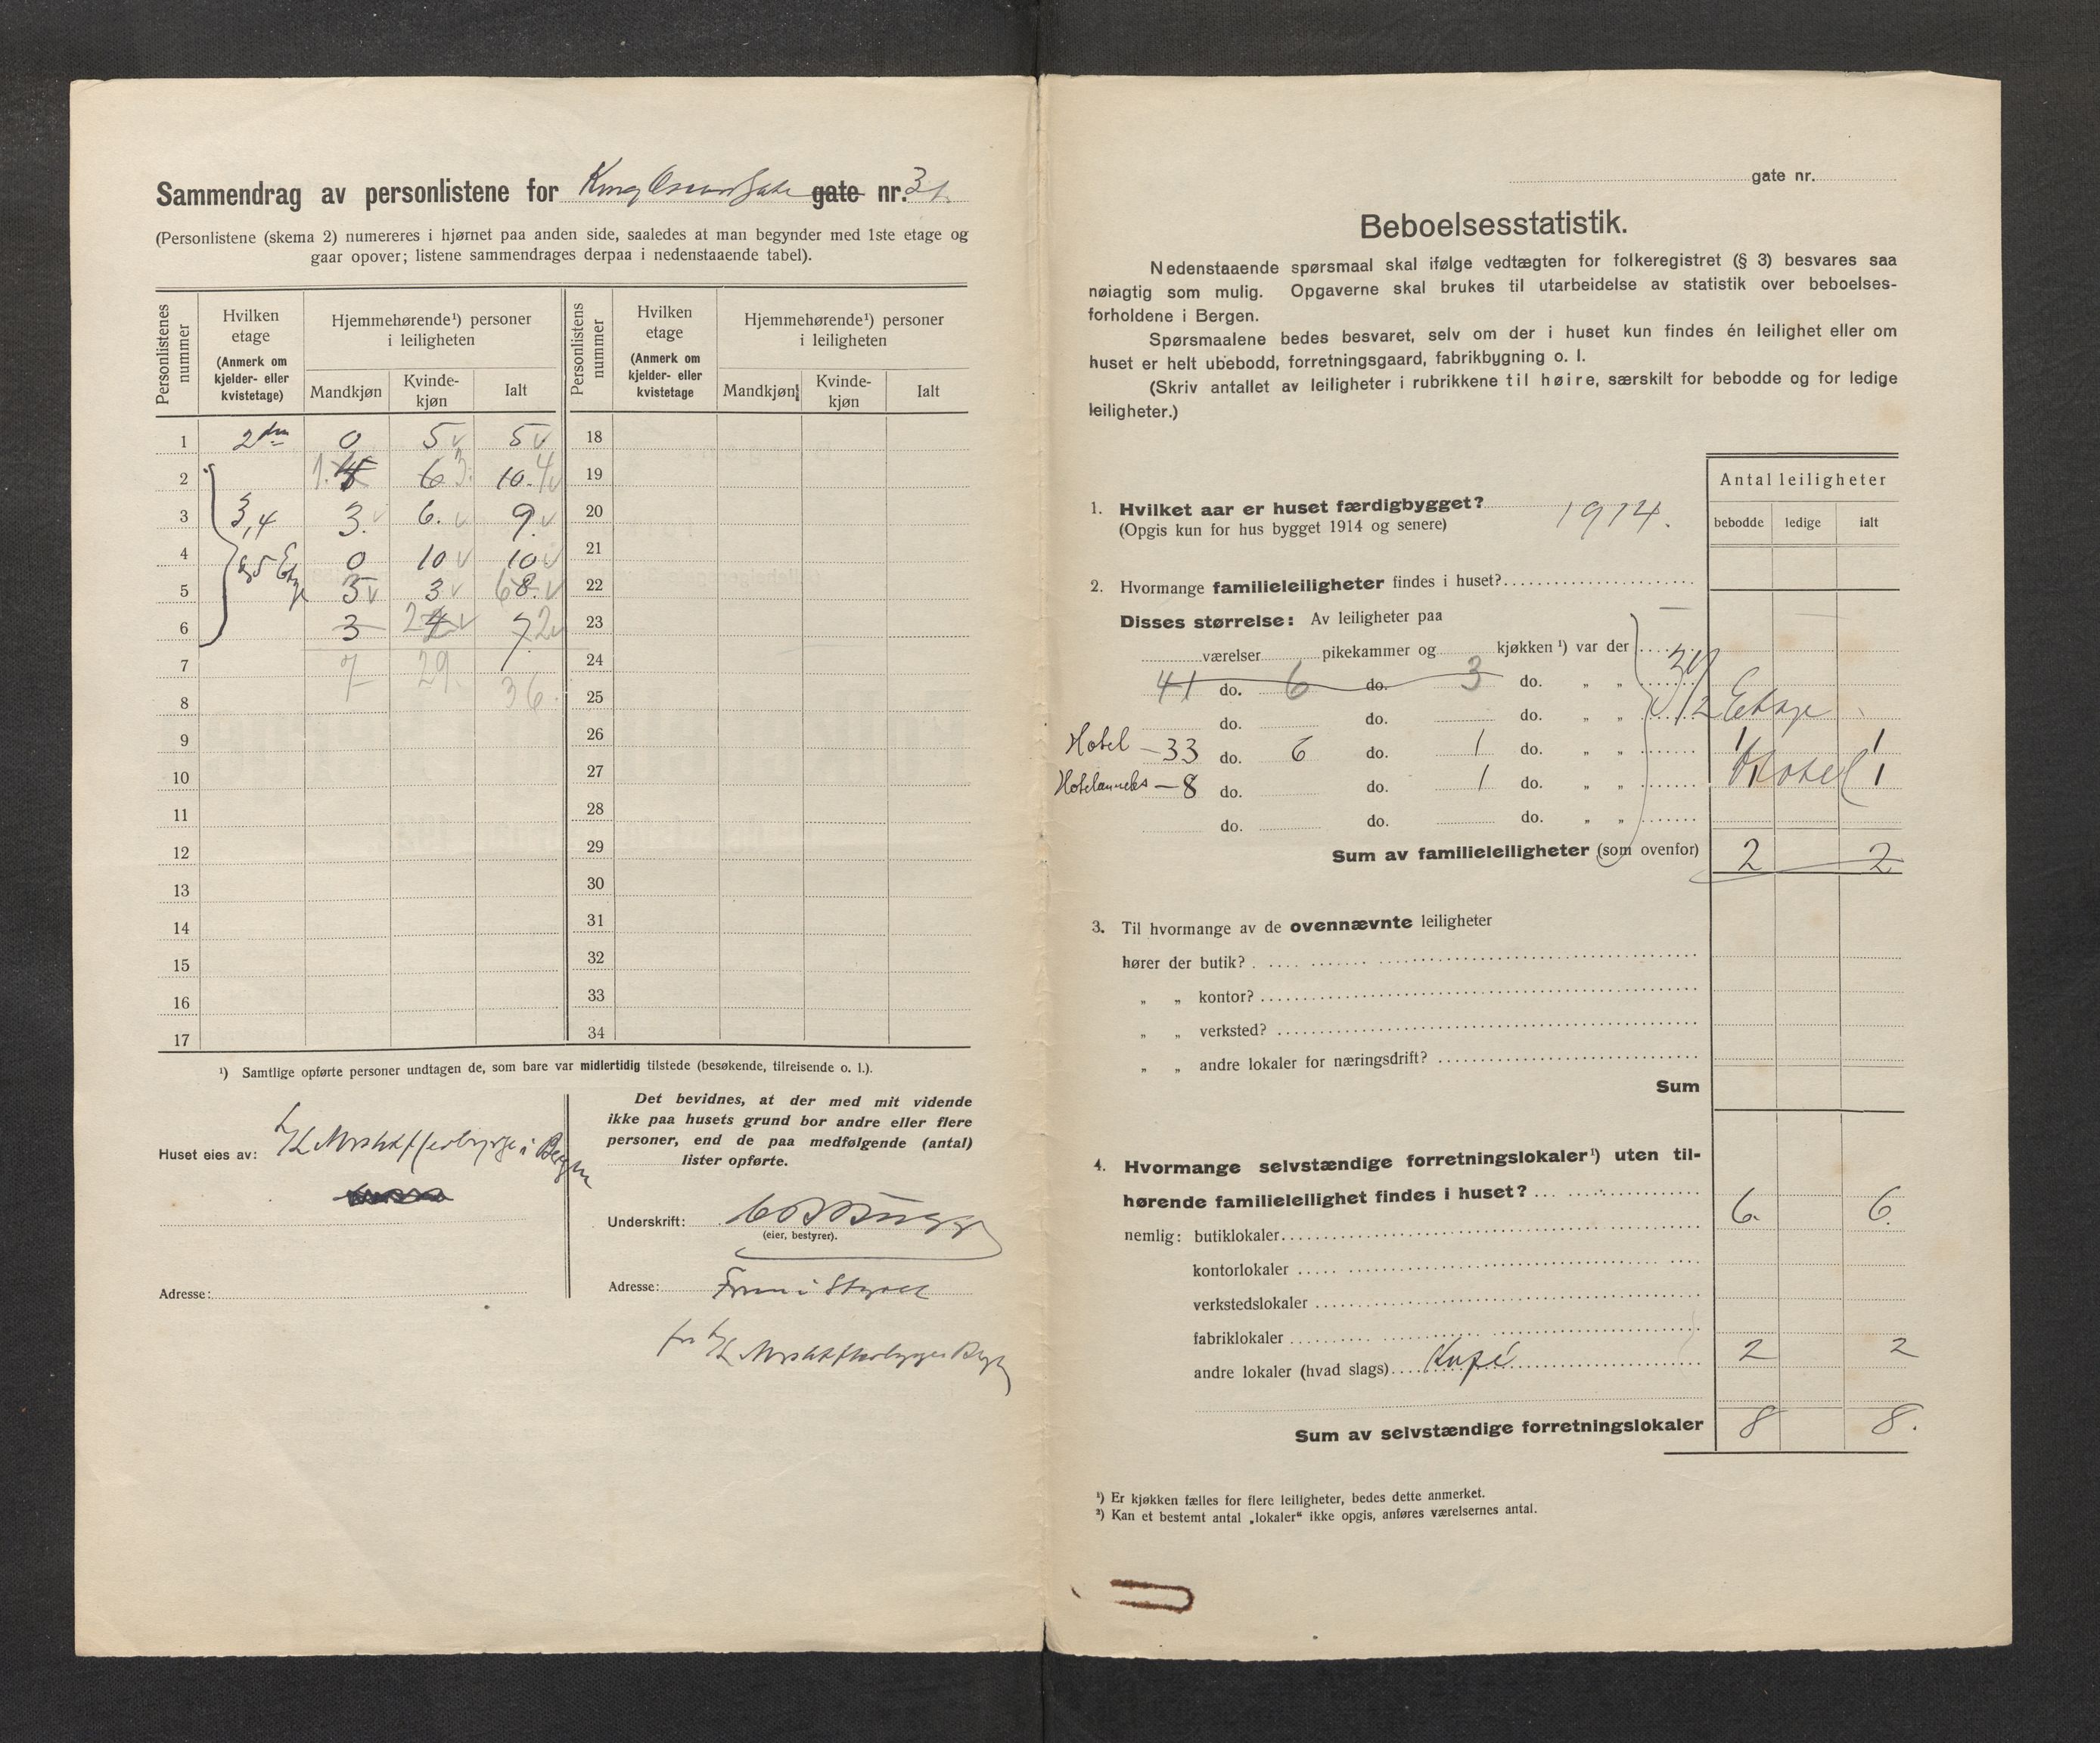 Sammendrag av personlistene for gate nr. 31.
(Personlistene (skema 2) numereres i hjørnet paa anden side, saaledes at man begynder med 1ste etage og
gaar opover; listene sammendrages derpaa i nedenstaaende tabel).
Personlistenes nummer
Hvilken etage
(Anmerk om kjelder- eller kvistetage)
Hjemmehørende¹) personer i leiligheten
Mandkjøn
Kvindekjøn
Ialt
Personlistens nummer
Hvilken etage
(Anmerk om kjelder- eller kvistetage
Hjemmehørende¹) personer i leiligheten
Mandkjøn
Kvinde-kjøn
Ialt
1 2den 0 5 v 5 v 18
2 1. 6 3. 10. 4 v 19
3 3,4 3. v 6. v 9. v 20
4 0 10 v 10 v 21
5 og 5 Etg 3 v 68. v 22
6 3 2 v 7 2 v 23
7 7 29. 24
8 36. 25
9 26
10 27
11 28
12 29
13 30
14 31
15 32
16 33
17 34
¹) Samtlige opførte personer undtagen de, som bare var midlertidig tilstede (besøkende, tilreisende o. l.).
Huset eies av:
Adresse:
Det bevidnes, at der med mit vidende
ikke paa husets grund bor andre eller flere
personer, end de paa medfølgende (antal)
lister opførte.
Underskrift:
(eier, bestyrer).
Adresse:
gate nr.
Beboelsesstatistik.
Nedenstaaende spørsmaal skal ifølge vedtægten for folkeregistret (§ 3) besvares saa
nøiagtig som mulig. Opgaverne skal brukes til utarbeidelse av statistik over beboelses-
forholdene i Bergen.
Spørsmaalene bedes besvaret, selv om der i huset kun findes én leilighet eller om
huset er helt ubebodd, forretningsgaard, fabrikbygning o. l.
(Skriv antallet av leiligheter i rubrikkene til høire, særskilt for bebodde og for ledige
leiligheter.)
Antal leiligheter
bebodde ledige ialt
1. Hvilket aar er huset færdigbygget? 1914.
(Opgis kun for hus bygget 1914 og senere)
2. Hvormange familieleiligheter findes i huset?
Disses størrelse: Av leiligheter paa
værelser pikekammer og kjøkken ¹) var der
41 do. 6 do. 3 do. „ „
do. do. do. „ „ Etage
Hotel – 33 do. 6 do. 1 do. „ „ 1 1
Hotelanneks – 8 do. do. 1 do. „ „ Hotel 1
do. do. do. „ „
Sum av familieleiligheter (som ovenfor) 2 2
3. Til hvormange av de ovennævnte leiligheter
hører der butik?
„ „ kontor?
„ „ verksted?
„ „ andre lokaler for næringsdrift?
Sum
4. Hvormange selvstændige forretningslokaler¹) uten til-
hørende familieleilighet findes i huset? 6. 6.
nemlig: butiklokaler
kontorlokaler
verkstedslokaler
fabriklokaler
andre lokaler (hvad slags) Kafé 2 2
Sum av selvstændige forretningslokaler 8 8.
¹) Er kjøkken fælles for flere leiligheter, bedes dette anmerket.
²) Kan et bestemt antal „lokaler“ ikke opgis, anføres værelsernes antal.